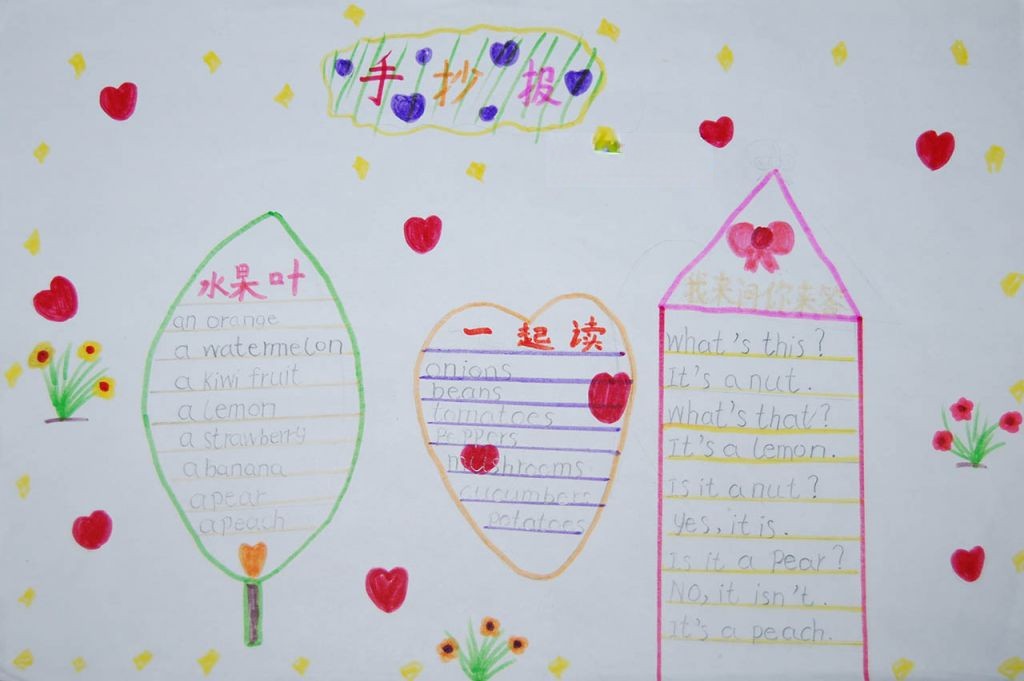 手抄报
水果叶
an orange
a watermelon
a kiwi fruit
a lemon
a strawberry
a banana
a pear
a peach
一起读
onions
beans
tomatoes
peppers
mushrooms
cucumbers
potatoes
我来问你来答
what's this?
It's a nut.
what's that?
It's a lemon.
Is it a nut?
Yes, it is.
Is it a pear?
No, it isn't.
It's a peach.